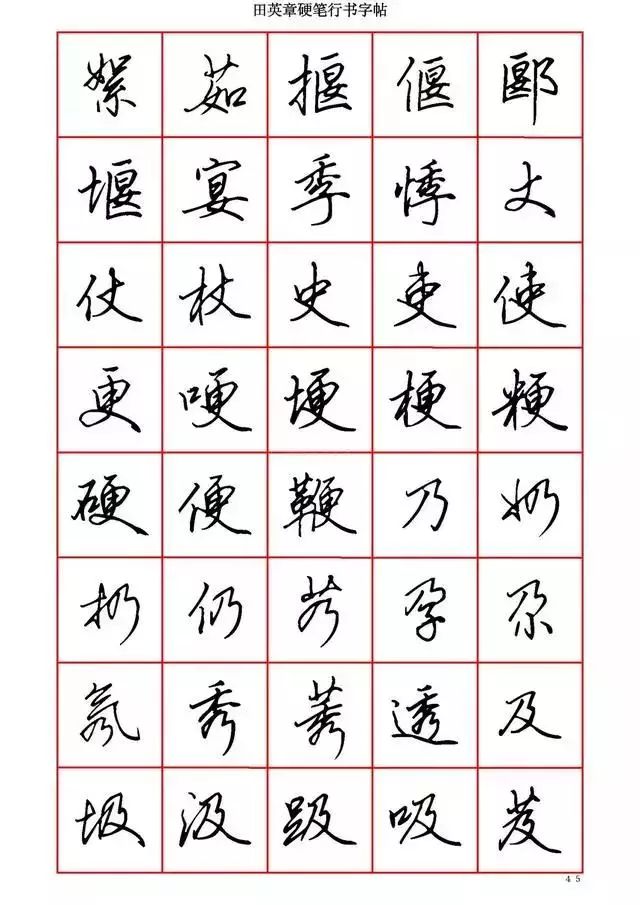 田英章硬笔行书字帖
絮 茹 揠 偃 郾
堰 宴 季 悸 丈
仗 杖 史 吏 使
更 哽 埂 梗 粳
硬 便 鞭 乃 奶
扔 仍 艿 孕 尕
氖 秀 莠 透 及
圾 汲 趿 吸 芨
45